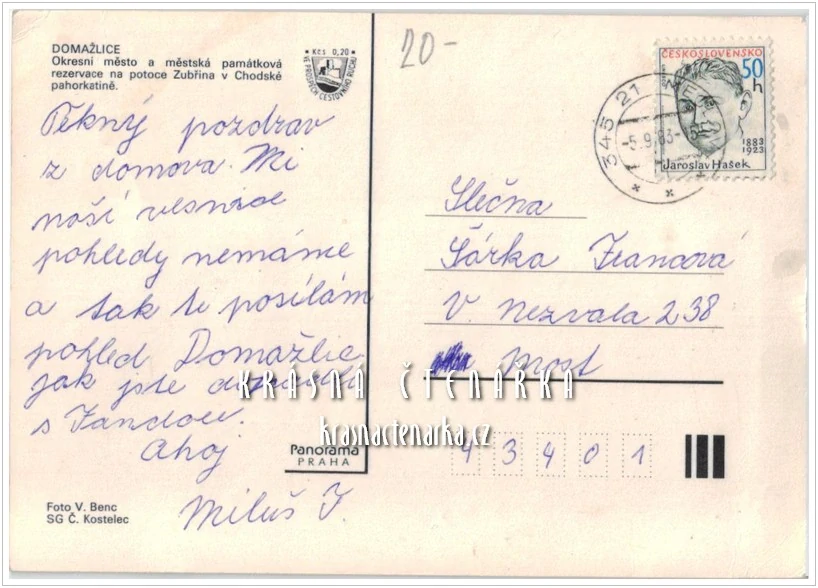 DOMAŽLICE
Okresní město a městská památková
rezervace na potoce Zubřina v Chodské
pahorkatině.
Kčs 0,20
VE PROSPĚCH CESTOVNÍHO RUCHU
20-
ČESKOSLOVENSKO
50
h
1883
1923
Jaroslav Hašek
345 21
-5.9.83-
Pěkný pozdrav
z domova. Mi
naší vesnice
pohledy nemáme
a tak te posílám
pohled Domažlic
jak jste
s Jandou.
Ahoj
Miluš J.
Slečna
Šárka Francová
V. Nezvala 238
Most
KRÁSNÁ ČTENÁRKA
krasnactenarka.cz
43401
Panorama
PRAHA
Foto V. Benc
SG Č. Kostelec